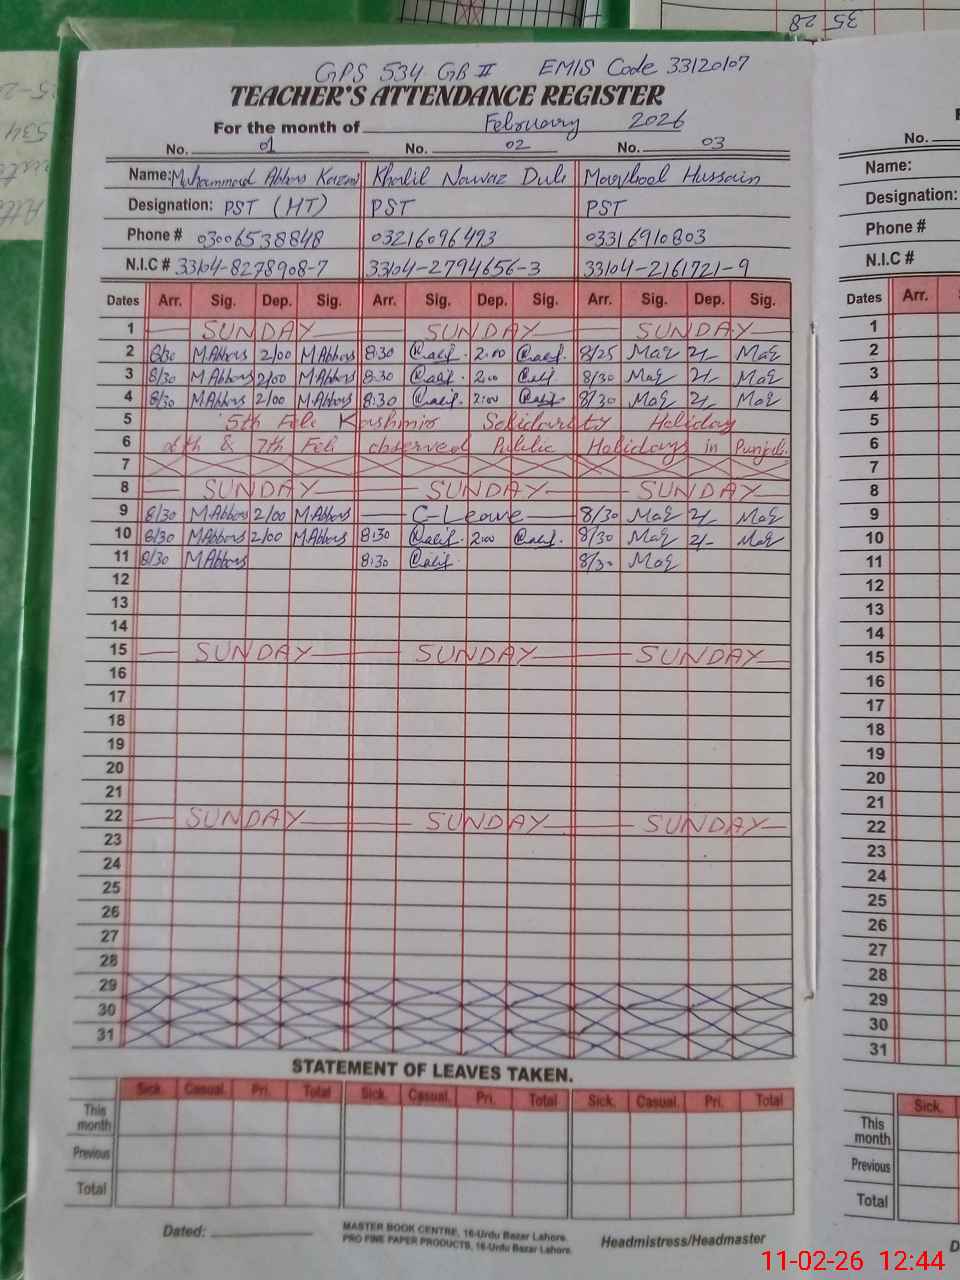 35 28
GPS 534 GB II EMIS Code 33120107
TEACHER'S ATTENDANCE REGISTER
For the month of February 2026
No. 01 No. 02 No. 03
Name: Muhammad Abbas Kazmi Khalil Nawaz Maqbool Hussain
Designation: PST (HT) PST PST
Phone # 03006538848 03216096493 03316910803
N.I.C # 33104-8278908-7 33104-2794656-3 33104-2161721-9
Dates Arr. Sig. Dep. Sig. Arr. Sig. Dep. Sig. Arr. Sig. Dep. Sig.
1 SUNDAY SUNDAY SUNDAY
2 8/30 M Abbas 2/00 M Abbas 8:30 2:00 8/25 2/-
3 8/30 M Abbas 2/00 M Abbas 8:30 2:00 8/30 2/-
4 8/30 M Abbas 2/00 M Abbas 8:30 2:00 8/30 2/-
5 5th Feb Kashmir Solidarity Holiday
6 6th & 7th Feb observed Public Holidays in Punjab.
7
8 SUNDAY SUNDAY SUNDAY
9 8/30 M Abbas 2/00 M Abbas C-Leave 8/30 2/-
10 8/30 M Abbas 2/00 M Abbas 8:30 2:00 8/30 2/-
11 8/30 M Abbas 8:30 8/30
12
13
14
15 SUNDAY SUNDAY SUNDAY
16
17
18
19
20
21
22 SUNDAY SUNDAY SUNDAY
23
24
25
26
27
28
29
30
31
STATEMENT OF LEAVES TAKEN.
Sick. Casual. Pri. Total Sick. Casual. Pri. Total Sick. Casual. Pri. Total
This month
Previous
Total
Dated:
MASTER BOOK CENTRE, 16-Urdu Bazar Lahore.
PRO FINE PAPER PRODUCTS, 16-Urdu Bazar Lahore.
Headmistress/Headmaster
No.
Name:
Designation:
Phone #
N.I.C #
Dates Arr.
1
2
3
4
5
6
7
8
9
10
11
12
13
14
15
16
17
18
19
20
21
22
23
24
25
26
27
28
29
30
31
Sick.
This month
Previous
Total
11-02-26 12:44